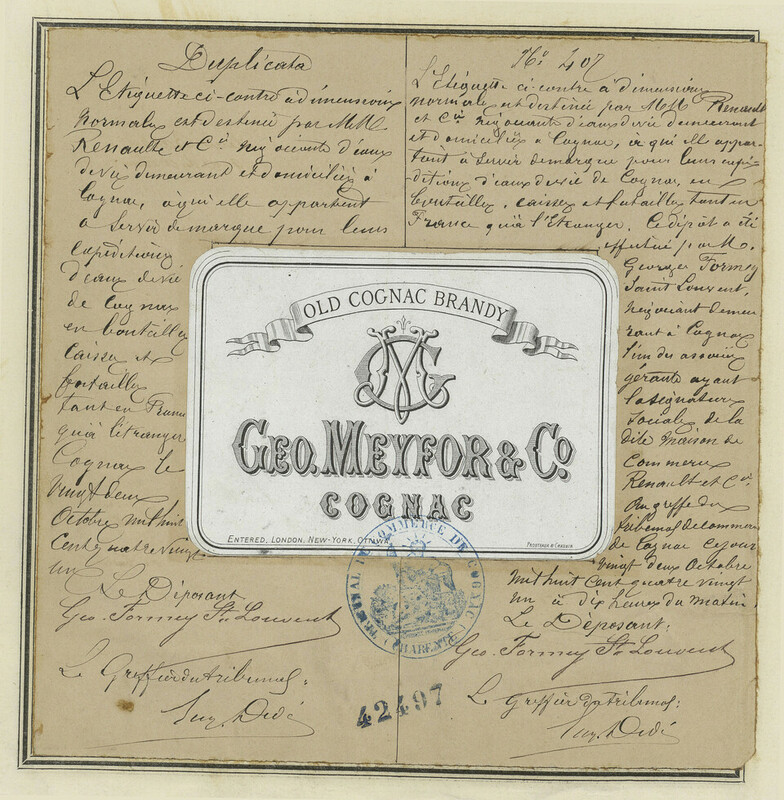 Duplicata
L'Etiquette ci-contre à dimensions
normales est destinée par M.M.
Renault et Cie négociants d'eaux
de vie demeurant et domiciliés à
Cognac, à qui elle appartient
à servir de marque pour leurs
expéditions
d'eaux de vie
de Cognac
en bouteilles
caisses et
futailles
tant en France
qu'à l'étranger
Cognac le
vingt deux
Octobre mil huit
cent quatre vingt
un
Le Déposant
Geo. Formey St. Louvent
Le Greffier du tribunal:
No 407
L'Etiquette ci-contre à dimensions
normales est destinée par M.M. Renault
et Cie négociants d'eaux de vie demeurant
et domiciliés à Cognac, à qui elle appar-
tient à servir de marque pour leurs expé-
ditions d'eaux de vie de Cognac, en
bouteilles, caisses et futailles tant en
France qu'à l'Etranger. Ce dépôt a été
effectué par M.
Georges Formey
Saint Louvent,
négociant demeu
rant à Cognac
l'un des associés
gérants ayant
la signature
sociale, de la
dite maison de
commerce
Renault et Cie
au greffe du
tribunal de commerce
de Cognac ce jour
vingt deux Octobre
mil huit cent quatre vingt
un à dix heures du matin
Le Déposant:
Geo. Formey St. Louvent
Le Greffier du tribunal:
OLD COGNAC BRANDY
GEO. MEYFOR & Co
COGNAC
ENTERED, LONDON, NEW-YORK, OTTAWA.
TRIBUNAL DE COMMERCE DE COGNAC
CHARENTE
42497